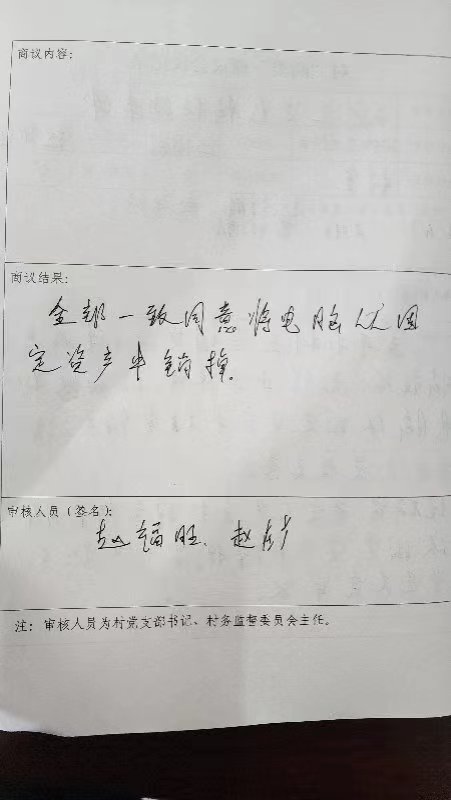 商议内容：
商议结果：
全部一致同意将电脑从固
定资产中销掉.
审核人员（签名）：
赵福旺. 赵彦
注：审核人员为村党支部书记、村务监督委员会主任。